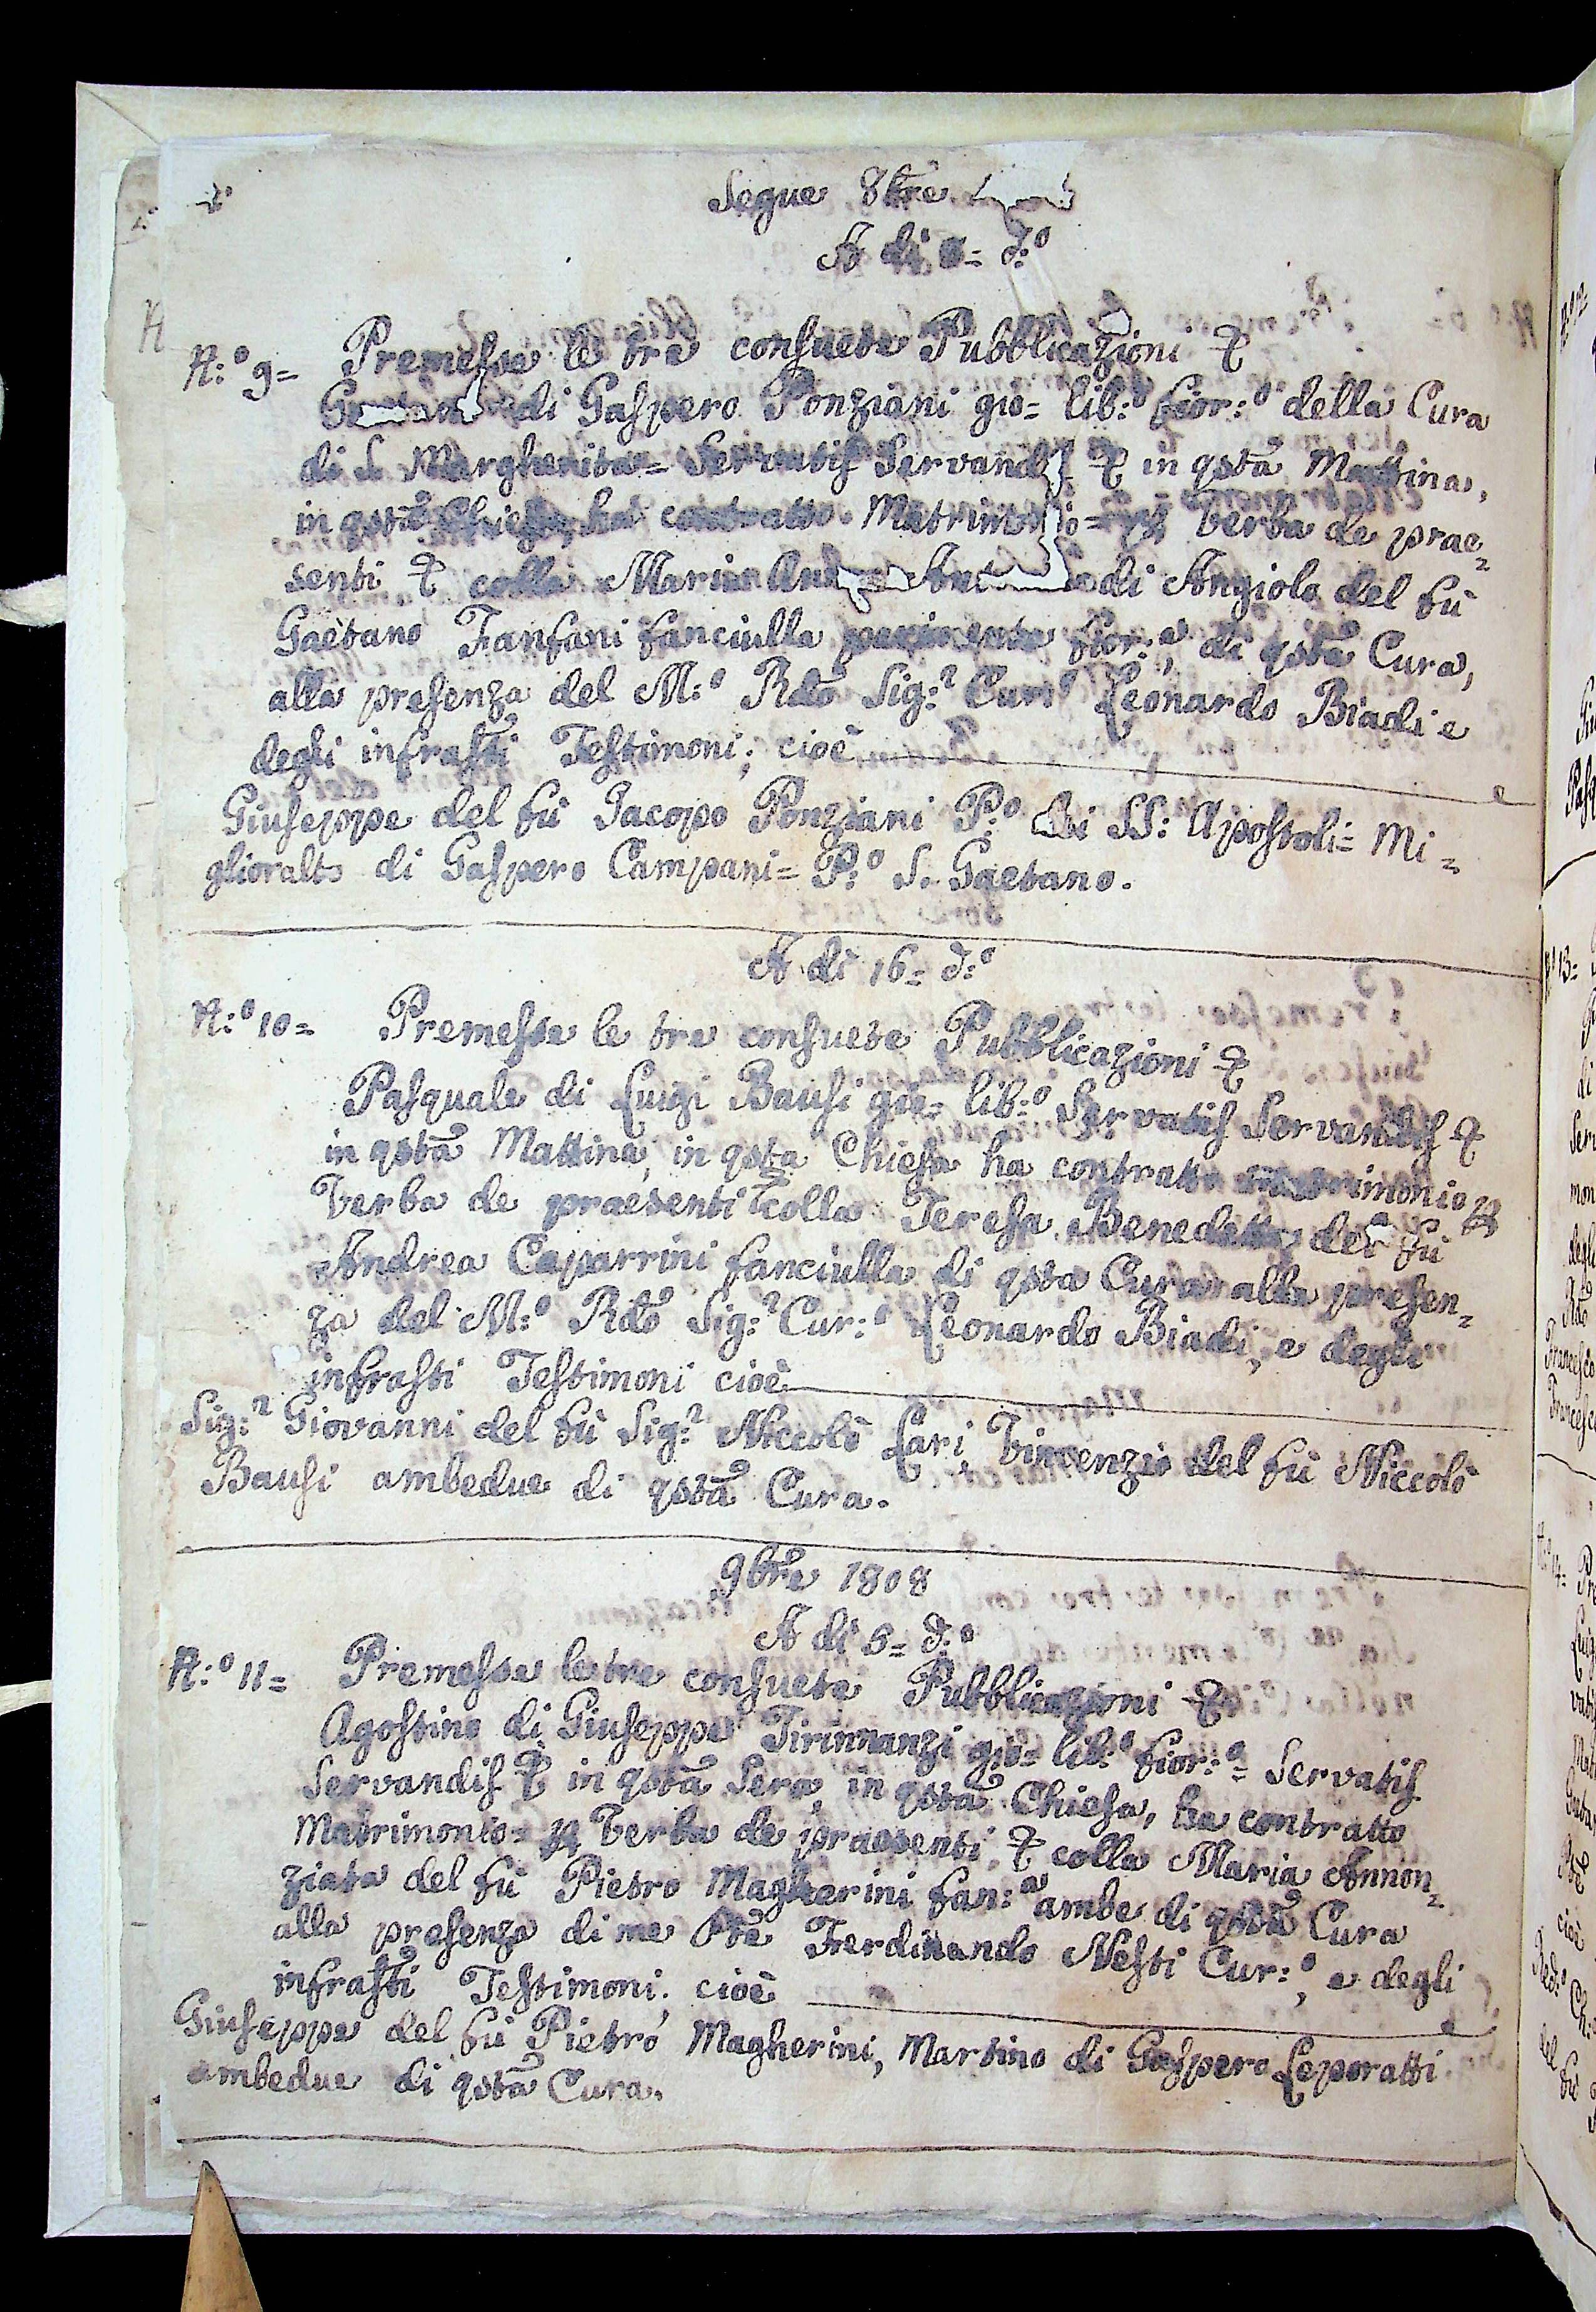 Segue 8bre
A di = d:o
N:o 9= Premesse le tre consuete Pubblicazioni &
di Gaspero Ponziani gio= lib:o fior:o della Cura
di S. Margherita= Servatis Servandis & in qsta Mattina,
in qsta Chiesa, ha contratto Matrimonio= p verba de prae=
senti & colla Maria di Angiolo del fù
Gaetano Fanfani fanciulla fior:a, di qsta Cura,
alla presenza del M:o Rdo Sig:r Cur:o Leonardo Biadi e
degli infrasti Testimoni; cioè
Giuseppe del fù Jacopo Ponziani P:o SS: Apostoli= Mi=
glioralto di Gaspero Campani= P:o S. Gaetano.
A di 16= d:o
N:o 10= Premesse le tre consuete Pubblicazioni &
Pasquale di Luigi Bausi gio= lib:o Servatis Servandis &
in qsta Mattina, in qsta Chiesa ha contratto matrimonio p
Verba de praesenti & colla Teresa Benedetta del fù
Andrea Caparrini fanciulla di qsta Cura alla presen=
za del M:o Rdo Sig:r Cur:o Leonardo Biadi, e degli
infrasti Testimoni cioè
Sig:r Giovanni del fù Sig:r Niccolò Lari, Vincenzio del fù Niccolò
Bausi ambedue di qsta Cura.
9bre 1808
A di 5= d:o
N:o 11= Premesse le tre consuete Pubblicazioni &
Agostino di Giuseppe Tirinnanzi gio= lib:o fior:o= Servatis
Servandis & in qsta Sera, in qsta Chiesa, ha contratto
Matrimonio= p Verba de praesenti, & colla Maria Annon=
ziata del fù Pietro Magherini fan:a ambe di qsta Cura
alla presenza di me Pre Ferdinando Nesti Cur:o, e degli
infrasti Testimoni. cioè
Giuseppe del fù Pietro Magherini, Martino di Gaspero Leporatti
ambedue di qsta Cura.